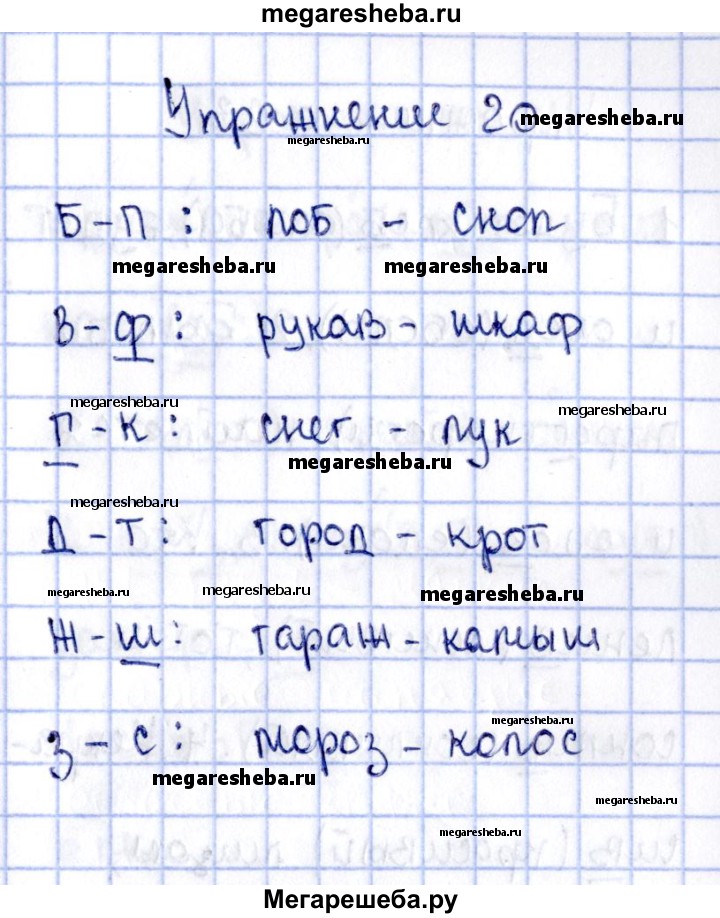 megaresheba.ru
Упражнение 20
megaresheba.ru
megaresheba.ru
Б - П : лоб - сноп
megaresheba.ru megaresheba.ru
В - Ф : рукав - шкаф
megaresheba.ru
megaresheba.ru
Г - К : снег - лук
megaresheba.ru
megaresheba.ru
Д - Т : город - крот
megaresheba.ru megaresheba.ru megaresheba.ru
Ж - Ш : гараж - камыш
megaresheba.ru
З - С : мороз - колос
megaresheba.ru
megaresheba.ru
megaresheba.ru
Мегарешеба.ру